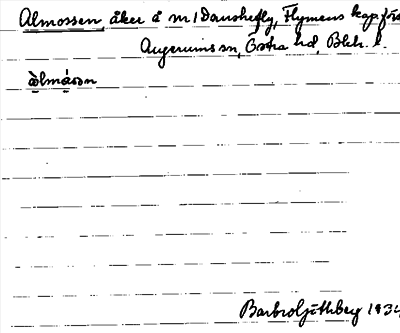 Almossen, åker å m/Danskefly, Flymens kap.förs
Augerums sn, Östra hd, Blek. l.
àlmɑ́sən
Barbro Ljüthberg 1934